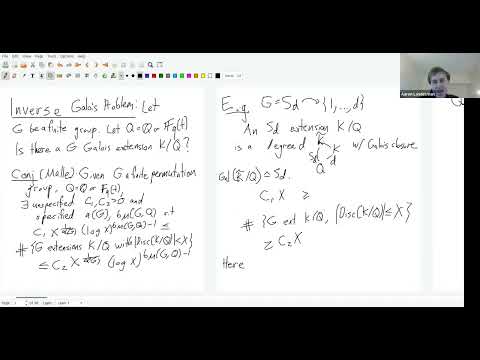 File Edit View Navigate Tools Options Help
Inverse Galois Problem: Let
G be a finite group. Let Q=ℚ or 𝔽q(t)
Is there a G Galois extension K/Q?
Conj (Malle): Given G a finite permutation
group, Q=ℚ or 𝔽q(t),
∃ unspecified C₁,C₂>0 and
specified a(G), b_M(G,Q) s.t
C₁ X^{1/a(G)} (log X)^{b_M(G,Q)-1} ≤
#{G extensions K/Q with |Disc(K/Q)|<X}
≤ C₂ X^{1/a(G)} (log X)^{b_M(G,Q)-1}
E.g. G=Sd ↷ {1,...,d}
An Sd extension K/Q
is a degree d K w/ Galois closure
K̃
K
Sd
d
Q
Gal(K̃/Q) ≅ Sd.
C₁ X ≥
#{G ext K/Q, |Disc(K/Q)|≤X}
≥ C₂X
Here
Aaron Landesman